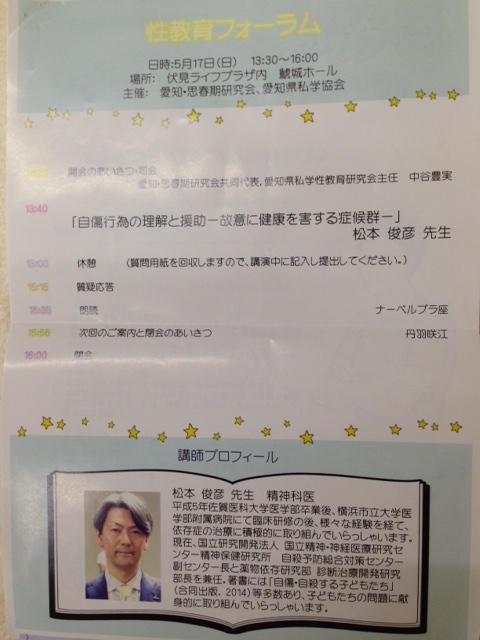 性教育フォーラム
日時:5月17日(日) 13:30~16:00
場所: 伏見ライフプラザ内 鯱城ホール
主催: 愛知・思春期研究会、愛知県私学協会
開会のあいさつ・司会
愛知・思春期研究会共同代表、愛知県私学性教育研究会主任 中谷豊実
13:40
「自傷行為の理解と援助－故意に健康を害する症候群－」
松本 俊彦 先生
15:00 休憩 (質問用紙を回収しますので、講演中に記入し提出してください。)
15:15 質疑応答
15:35 朗読 ナーベルプラ座
15:55 次回のご案内と閉会のあいさつ 丹羽咲江
16:00 閉会
講師プロフィール
松本 俊彦 先生 精神科医
平成5年佐賀医科大学医学部卒業後、横浜市立大学医
学部附属病院にて臨床研修の後、様々な経験を経て、
依存症の治療に積極的に取り組んでいらっしゃいます。
現在、国立研究開発法人 国立精神・神経医療研究セ
ンター精神保健研究所 自殺予防総合対策センター
副センター長と薬物依存研究部 診断治療開発研究
部長を兼任。著書には「自傷・自殺する子どもたち」
(合同出版、2014)等多数あり、子どもたちの問題に献
身的に取り組んでいらっしゃいます。